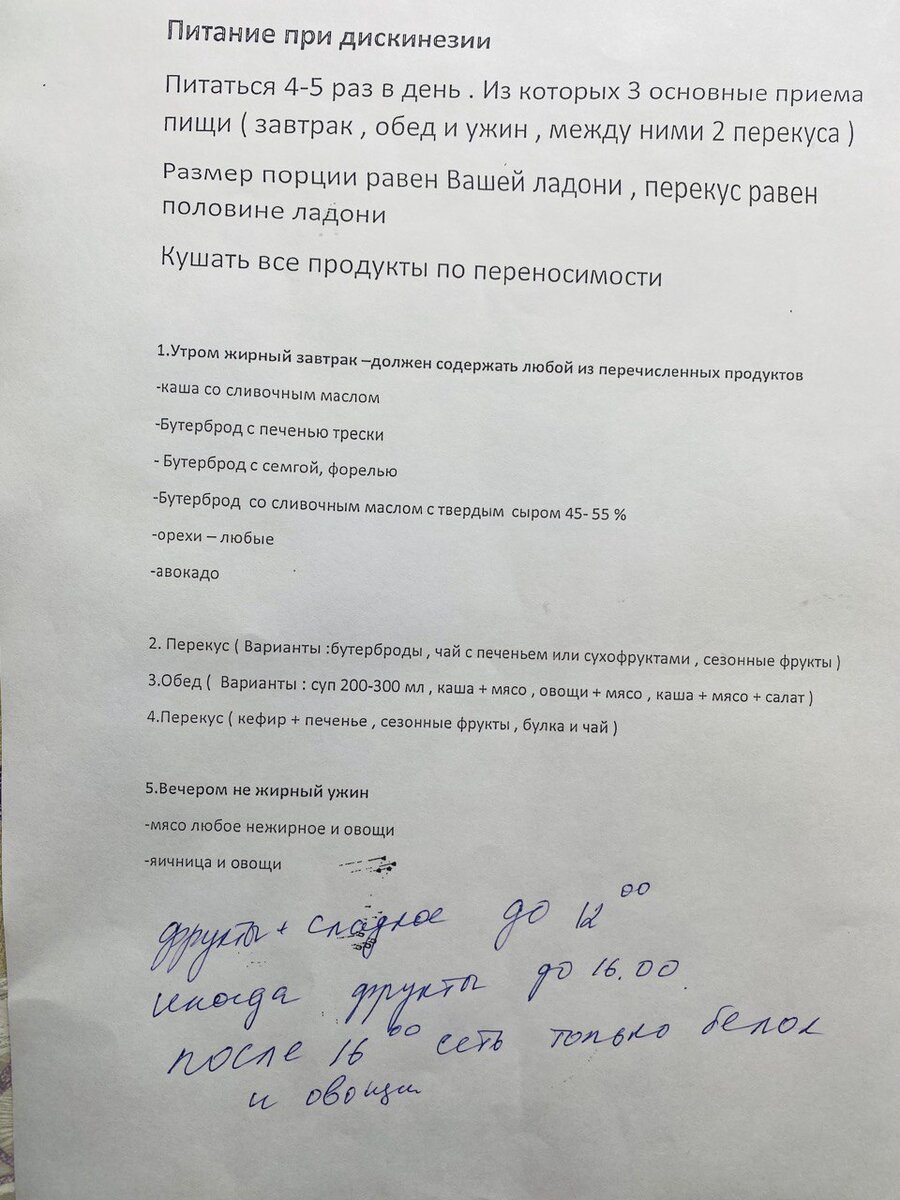 Питание при дискинезии
Питаться 4-5 раз в день . Из которых 3 основные приема
пищи ( завтрак , обед и ужин , между ними 2 перекуса )
Размер порции равен Вашей ладони , перекус равен
половине ладони
Кушать все продукты по переносимости
1.Утром жирный завтрак –должен содержать любой из перечисленных продуктов
-каша со сливочным маслом
-Бутерброд с печенью трески
- Бутерброд с семгой, форелью
-Бутерброд со сливочным маслом с твердым сыром 45- 55 %
-орехи – любые
-авокадо
2. Перекус ( Варианты :бутерброды , чай с печеньем или сухофруктами , сезонные фрукты )
3.Обед ( Варианты : суп 200-300 мл , каша + мясо , овощи + мясо , каша + мясо + салат )
4.Перекус ( кефир + печенье , сезонные фрукты , булка и чай )
5.Вечером не жирный ужин
-мясо любое нежирное и овощи
-яичница и овощи
фрукты + сладкое до 12 00
иногда фрукты до 16.00
после 16 00 есть только белок
и овощи